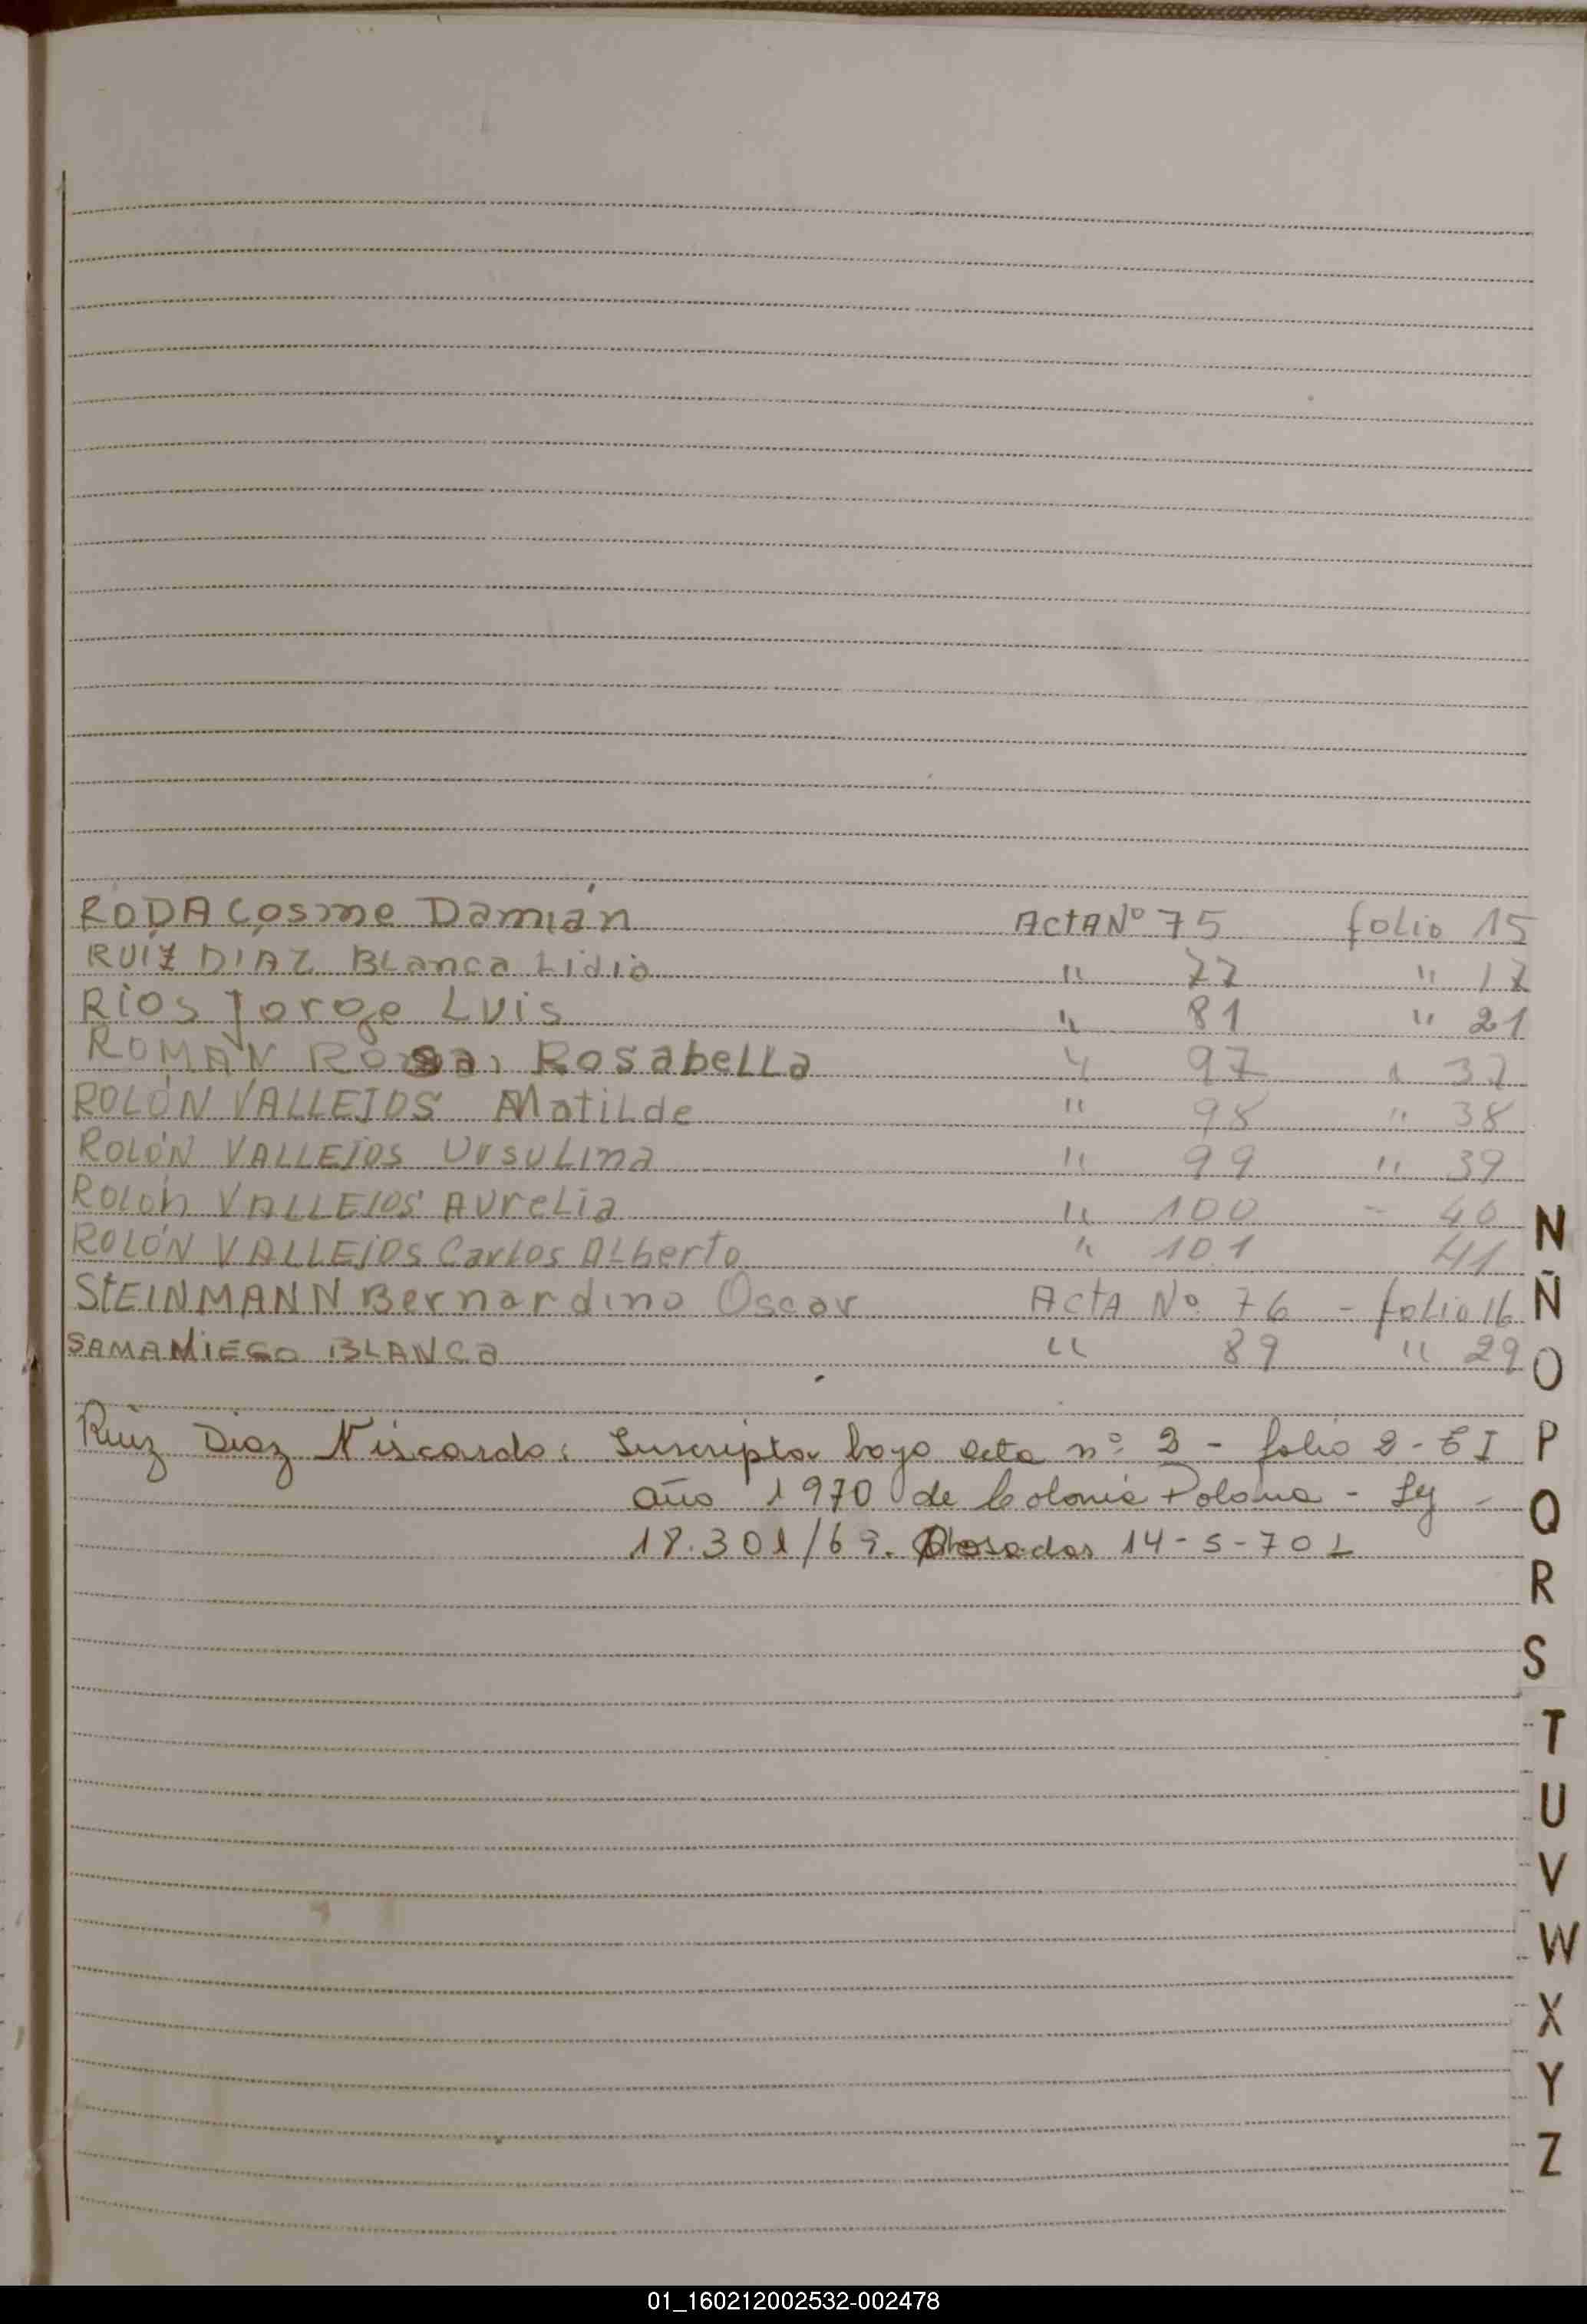 RODA Cosme Damián ActA Nº 75 folio 15
RUÍZ DIAZ BLanca Lidia " 77 " 17
RÍOS Jorge LUis " 81 " 21
ROMAN Rosabella " 97 " 37
ROLÓN VALLEJOS Matilde " 98 " 38
ROLÓN VALLEJOS UrsuLina " 99 " 39
ROLÓN VALLEJOS AureLia " 100 - 40
ROLÓN VALLEJOS Carlos ALberto " 101 41
StEINMANN Bernardino Oscar ActA Nº 76 - folio 16
SAMANIEGO BLANCa " 89 " 29
Ruiz Diaz Niscardo: Inscripta bajo acta nº 2 - folio 2 - E I
año 1970 de Colonia Polana - Ley -
18.301/69. Posadas 14-5-70
N
Ñ
O
P
Q
R
S
T
U
V
W
X
Y
Z
01_160212002532-002478